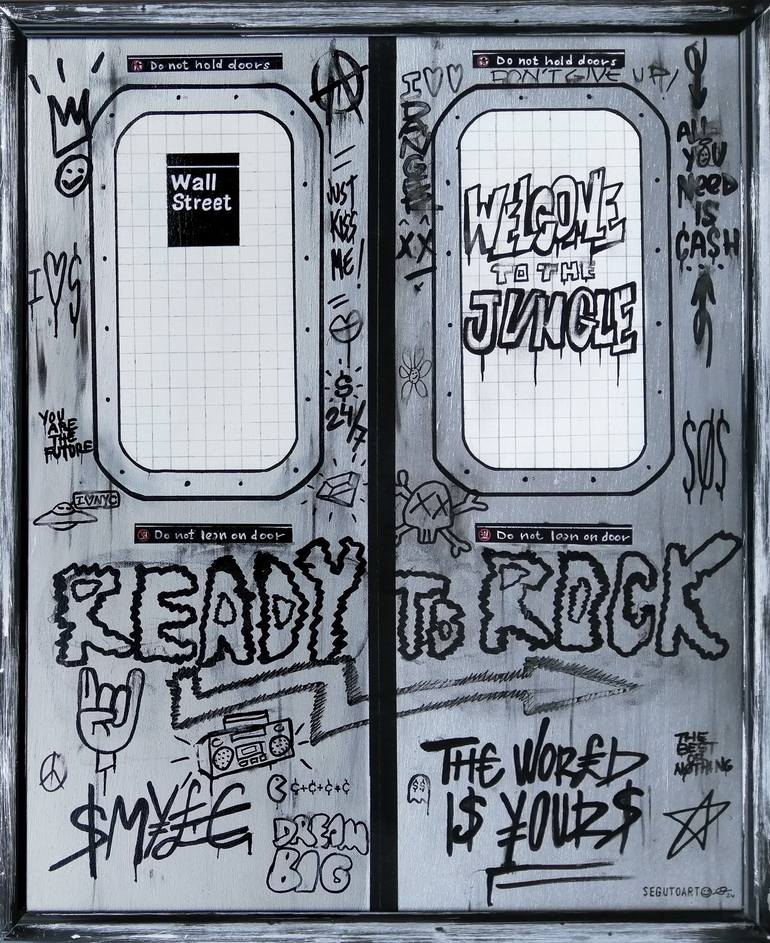 Do not hold doors
Wall
Street
JUST
KISS
ME!
I ♡ $
$
24/7
YOU
ARE
THE
FUTURE
I♡NYC
Do not lean on door
Do not hold doors
I♡♡
DON'T GIVE UP!
XX
WELCOME
TO THE
JUNGLE
ALL
YOU
NEED
IS
CA$H
$0$
Do not lean on door
READY TO ROCK
$M¥££
¢+¢+¢+¢
DREAM
BIG
THE WOR£D
I$ ¥OUR$
$$
THE
BEST
OR
NOTHING
SEGUTOART